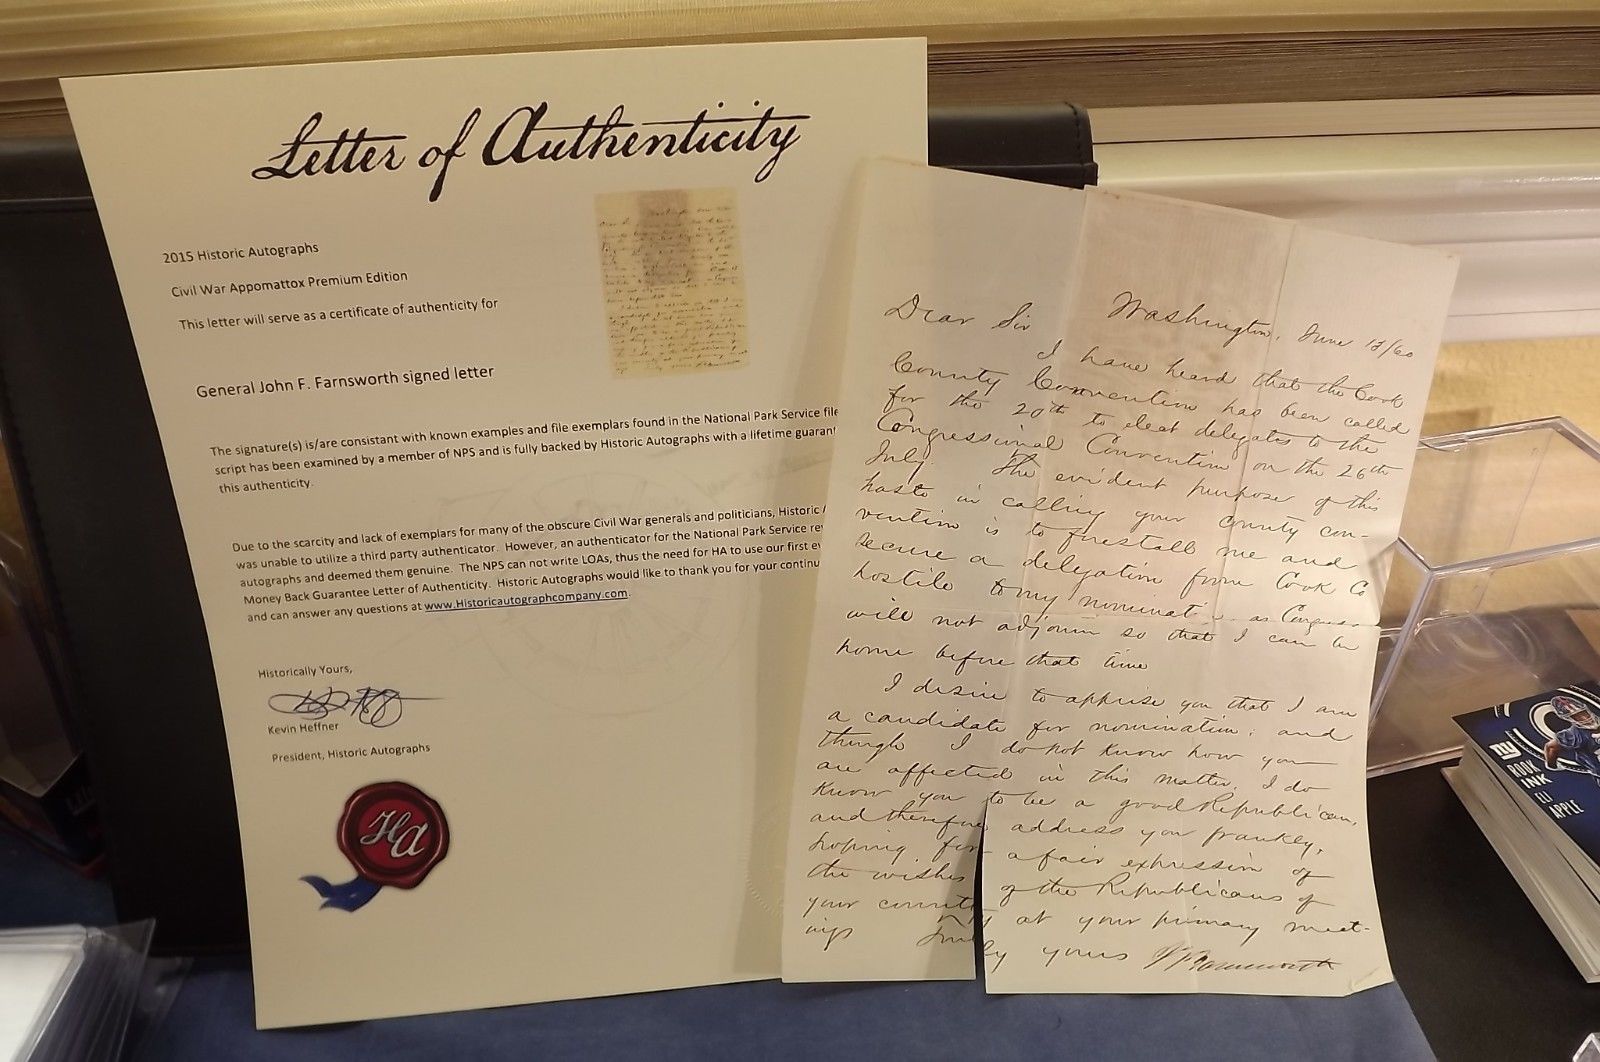 Letter of Authenticity
2015 Historic Autographs
Civil War Appomattox Premium Edition
This letter will serve as a certificate of authenticity for
General John F. Farnsworth signed letter
The signature(s) is/are consistent with known examples and file exemplars found in the National Park Service file
script has been examined by a member of NPS and is fully backed by Historic Autographs with a lifetime guarant
this authenticity.
Due to the scarcity and lack of exemplars for many of the obscure Civil War generals and politicians, Historic
was unable to utilize a third party authenticator. However, an authenticator for the National Park Service re
autographs and deemed them genuine. The NPS can not write LOAs, thus the need for HA to use our first e
Money Back Guarantee Letter of Authenticity. Historic Autographs would like to thank you for your continu
and can answer any questions at www.Historicautographcompany.com.
Historically Yours,
Kevin Heffner
President, Historic Autographs
HA
Washington, June 18/60
Dear Sir
I have heard that the Cook
County Convention has been called
for the 20th to elect delegates to the
Congressional Convention on the 26th
July. The evident purpose of this
haste in calling your county con-
vention is to forestall me and
secure a delegation from Cook Co
hostile to my nominat as Congress
will not adjourn so that I can be
home before that time
I desire to apprise you that I am
a candidate for nomination; and
though I do not know how you
are affected in this matter, I do
know you to be a good Republican,
and therefore address you frankly,
hoping for a fair expression of
the wishes of the Republicans of
your county at your primary meet-
ings Truly yours J F Farnsworth
ROOK
INK
ELI
APPLE